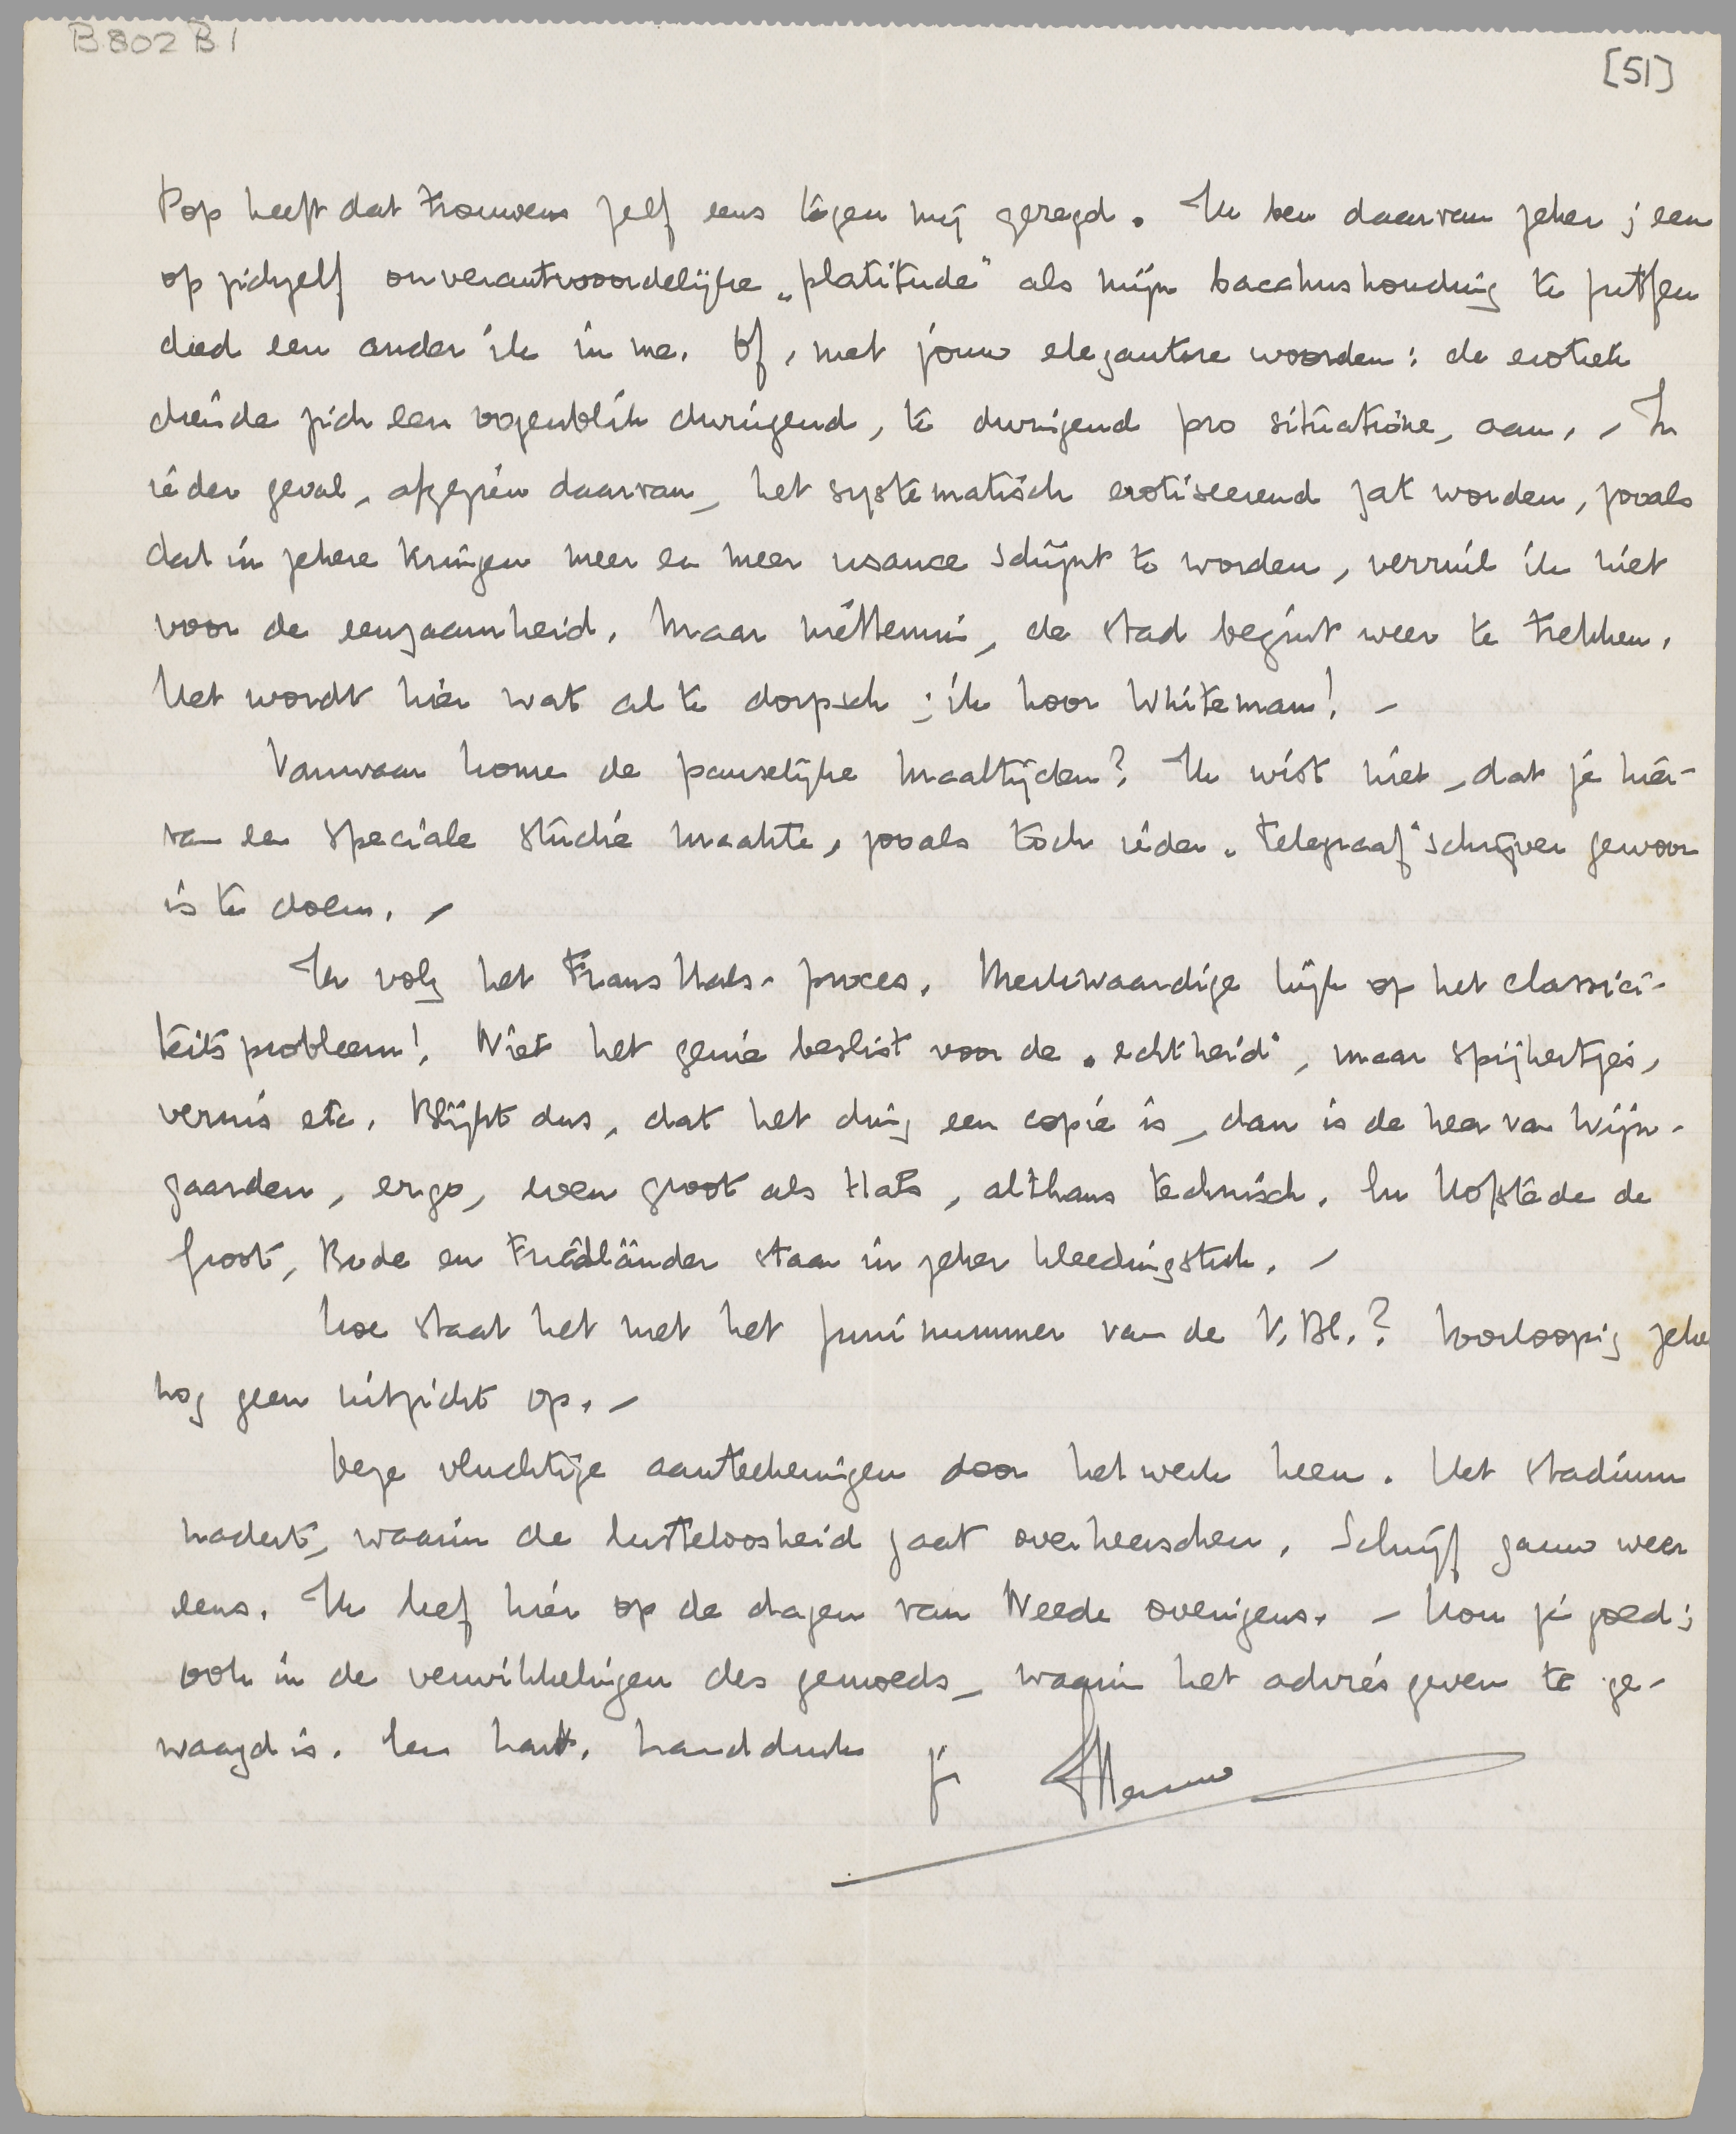 B 802 B 1
[51]
Pop heeft dat trouwens zelf eens tegen mij gezegd. Ik ben daarvan zeker; een
op zichzelf onverantwoordelijke „platitude" als mijn bacchushouding te putfen
deed een ander ik in me. Of, met jouw elegantere woorden: de erotiek
diende zich een oogenblik dwingend, te dwingend pro situatione, aan. - In
ieder geval, afgezien daarvan, het systematisch erotiseerend zat worden, zooals
dat in zekere kringen meer en meer usance schijnt te worden, verruil ik niet
voor de eenzaamheid. Maar niettemin, de stad begint weer te trekken.
Het wordt hier wat al te dorpsch; ik hoor Whiteman! -
Vanwaar kome de pauselijke maaltijden? Ik wist niet, dat je hier-
van een speciale studie maakte, zooals toch ieder „Telegraaf"schrijver gewoon
is te doen. -
Ik volg het Frans Hals-proces. Merkwaardige kijk op het classici-
teitsprobleem! Niet het genie beslist voor de „echtheid", maar spijkertjes,
vernis etc. Blijkt dus, dat het ding een copie is, dan is de heer van Wijn-
gaarden, ergo, even groot als Hals, althans technisch. En Hofstede de
Groot, Bode en Friedländer staan in zeker kleedingstuk. -
Hoe staat het met het Juninummer van de V. Bl.? Voorloopig zeker
nog geen uitzicht op. -
Deze vluchtige aanteekeningen door het werk heen. Het stadium
nadert, waarin de lusteloosheid gaat overheerschen. Schrijf gauw weer
eens. Ik leef hier op de dagen van Neede overigens. - Hou je goed;
ook in de verwikkelingen des gemoeds, waarin het advies geven te ge-
waagd is. Een hart. handdruk
je Menno